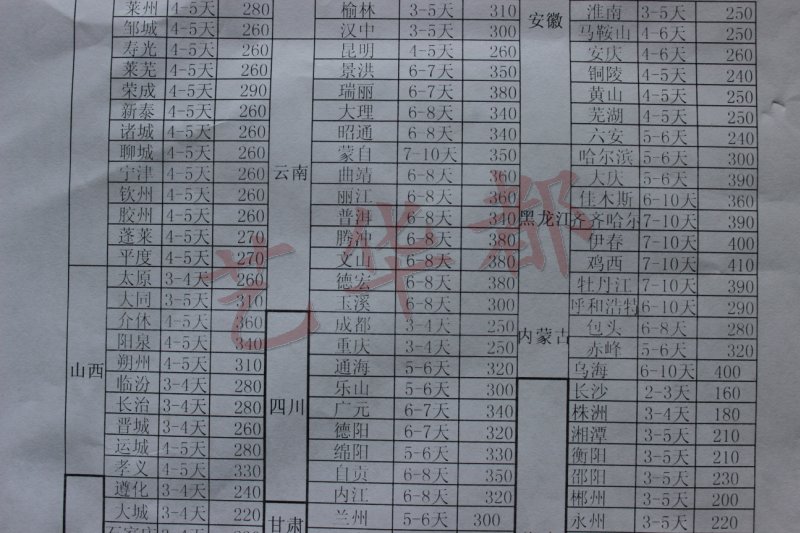 莱州 4-5天 280 榆林 3-5天 310 安徽 淮南 3-5天 250
邹城 4-5天 260 汉中 3-5天 300 马鞍山 4-6天 250
寿光 4-5天 260 昆明 4-5天 260 安庆 4-6天 260
莱芜 4-5天 260 云南 景洪 6-7天 350 铜陵 4-5天 240
荣成 4-5天 290 瑞丽 6-7天 380 黄山 4-5天 250
新泰 4-5天 260 大理 6-8天 340 芜湖 4-5天 250
诸城 4-5天 260 昭通 6-8天 340 六安 5-6天 240
聊城 4-5天 260 蒙自 7-10天 350 黑龙江 哈尔滨 5-6天 300
宁津 4-5天 260 曲靖 6-8天 360 大庆 5-6天 390
钦州 4-5天 260 丽江 6-8天 360 佳木斯 6-10天 360
胶州 4-5天 260 普洱 6-8天 340 齐齐哈尔 7-10天 390
蓬莱 4-5天 270 腾冲 6-8天 380 伊春 7-10天 400
平度 4-5天 270 文山 6-8天 380 鸡西 7-10天 410
山西 太原 3-4天 260 德宏 6-8天 380 牡丹江 7-10天 390
大同 3-5天 310 玉溪 6-8天 300 内蒙古 呼和浩特 6-10天 290
介休 4-5天 360 四川 成都 3-4天 250 包头 6-8天 280
阳泉 4-5天 340 重庆 3-4天 250 赤峰 5-6天 320
朔州 4-5天 310 通海 5-6天 320 乌海 6-10天 400
临汾 3-4天 280 乐山 5-6天 300 长沙 2-3天 160
长治 3-4天 280 广元 6-7天 340 株洲 3-4天 180
晋城 3-4天 260 德阳 6-7天 320 湘潭 3-5天 210
运城 4-5天 280 绵阳 5-6天 330 衡阳 3-5天 210
孝义 4-5天 330 自贡 6-8天 350 邵阳 3-5天 230
遵化 3-4天 240 内江 6-8天 320 郴州 3-5天 200
大城 3-4天 220 甘肃 兰州 5-6天 300 永州 3-5天 220
艺华都